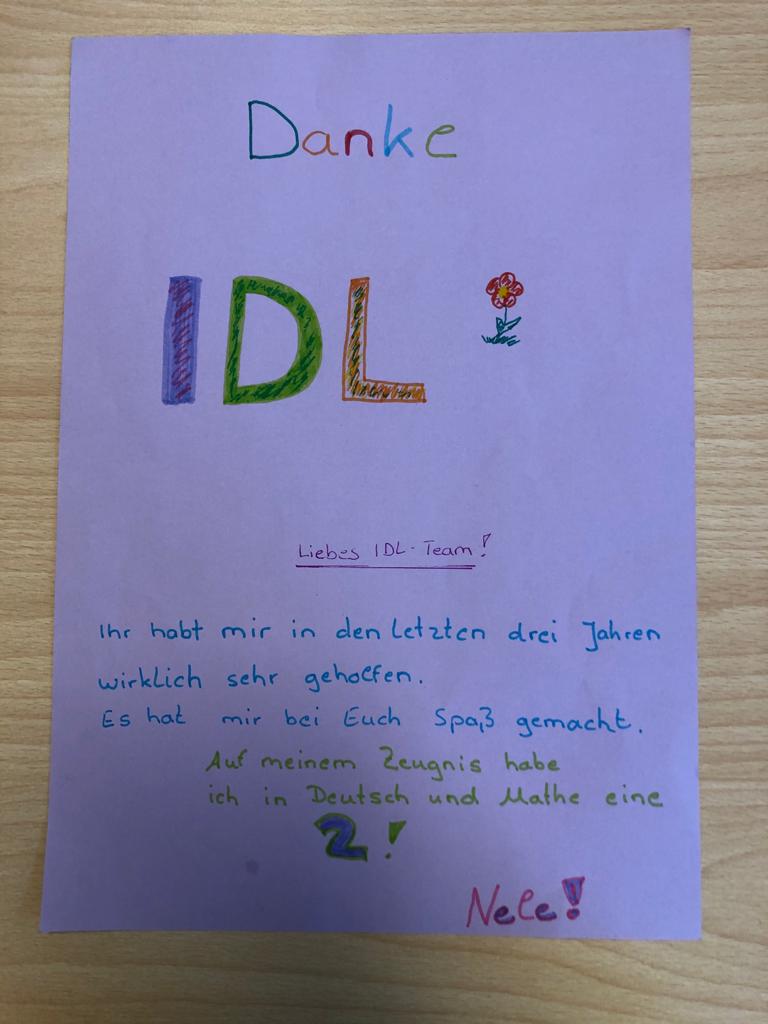 Danke
IDL
Liebes IDL-Team!
Ihr habt mir in den letzten drei Jahren
wirklich sehr geholfen.
Es hat mir bei Euch Spaß gemacht.
Auf meinem Zeugnis habe
ich in Deutsch und Mathe eine
2!
Nele!